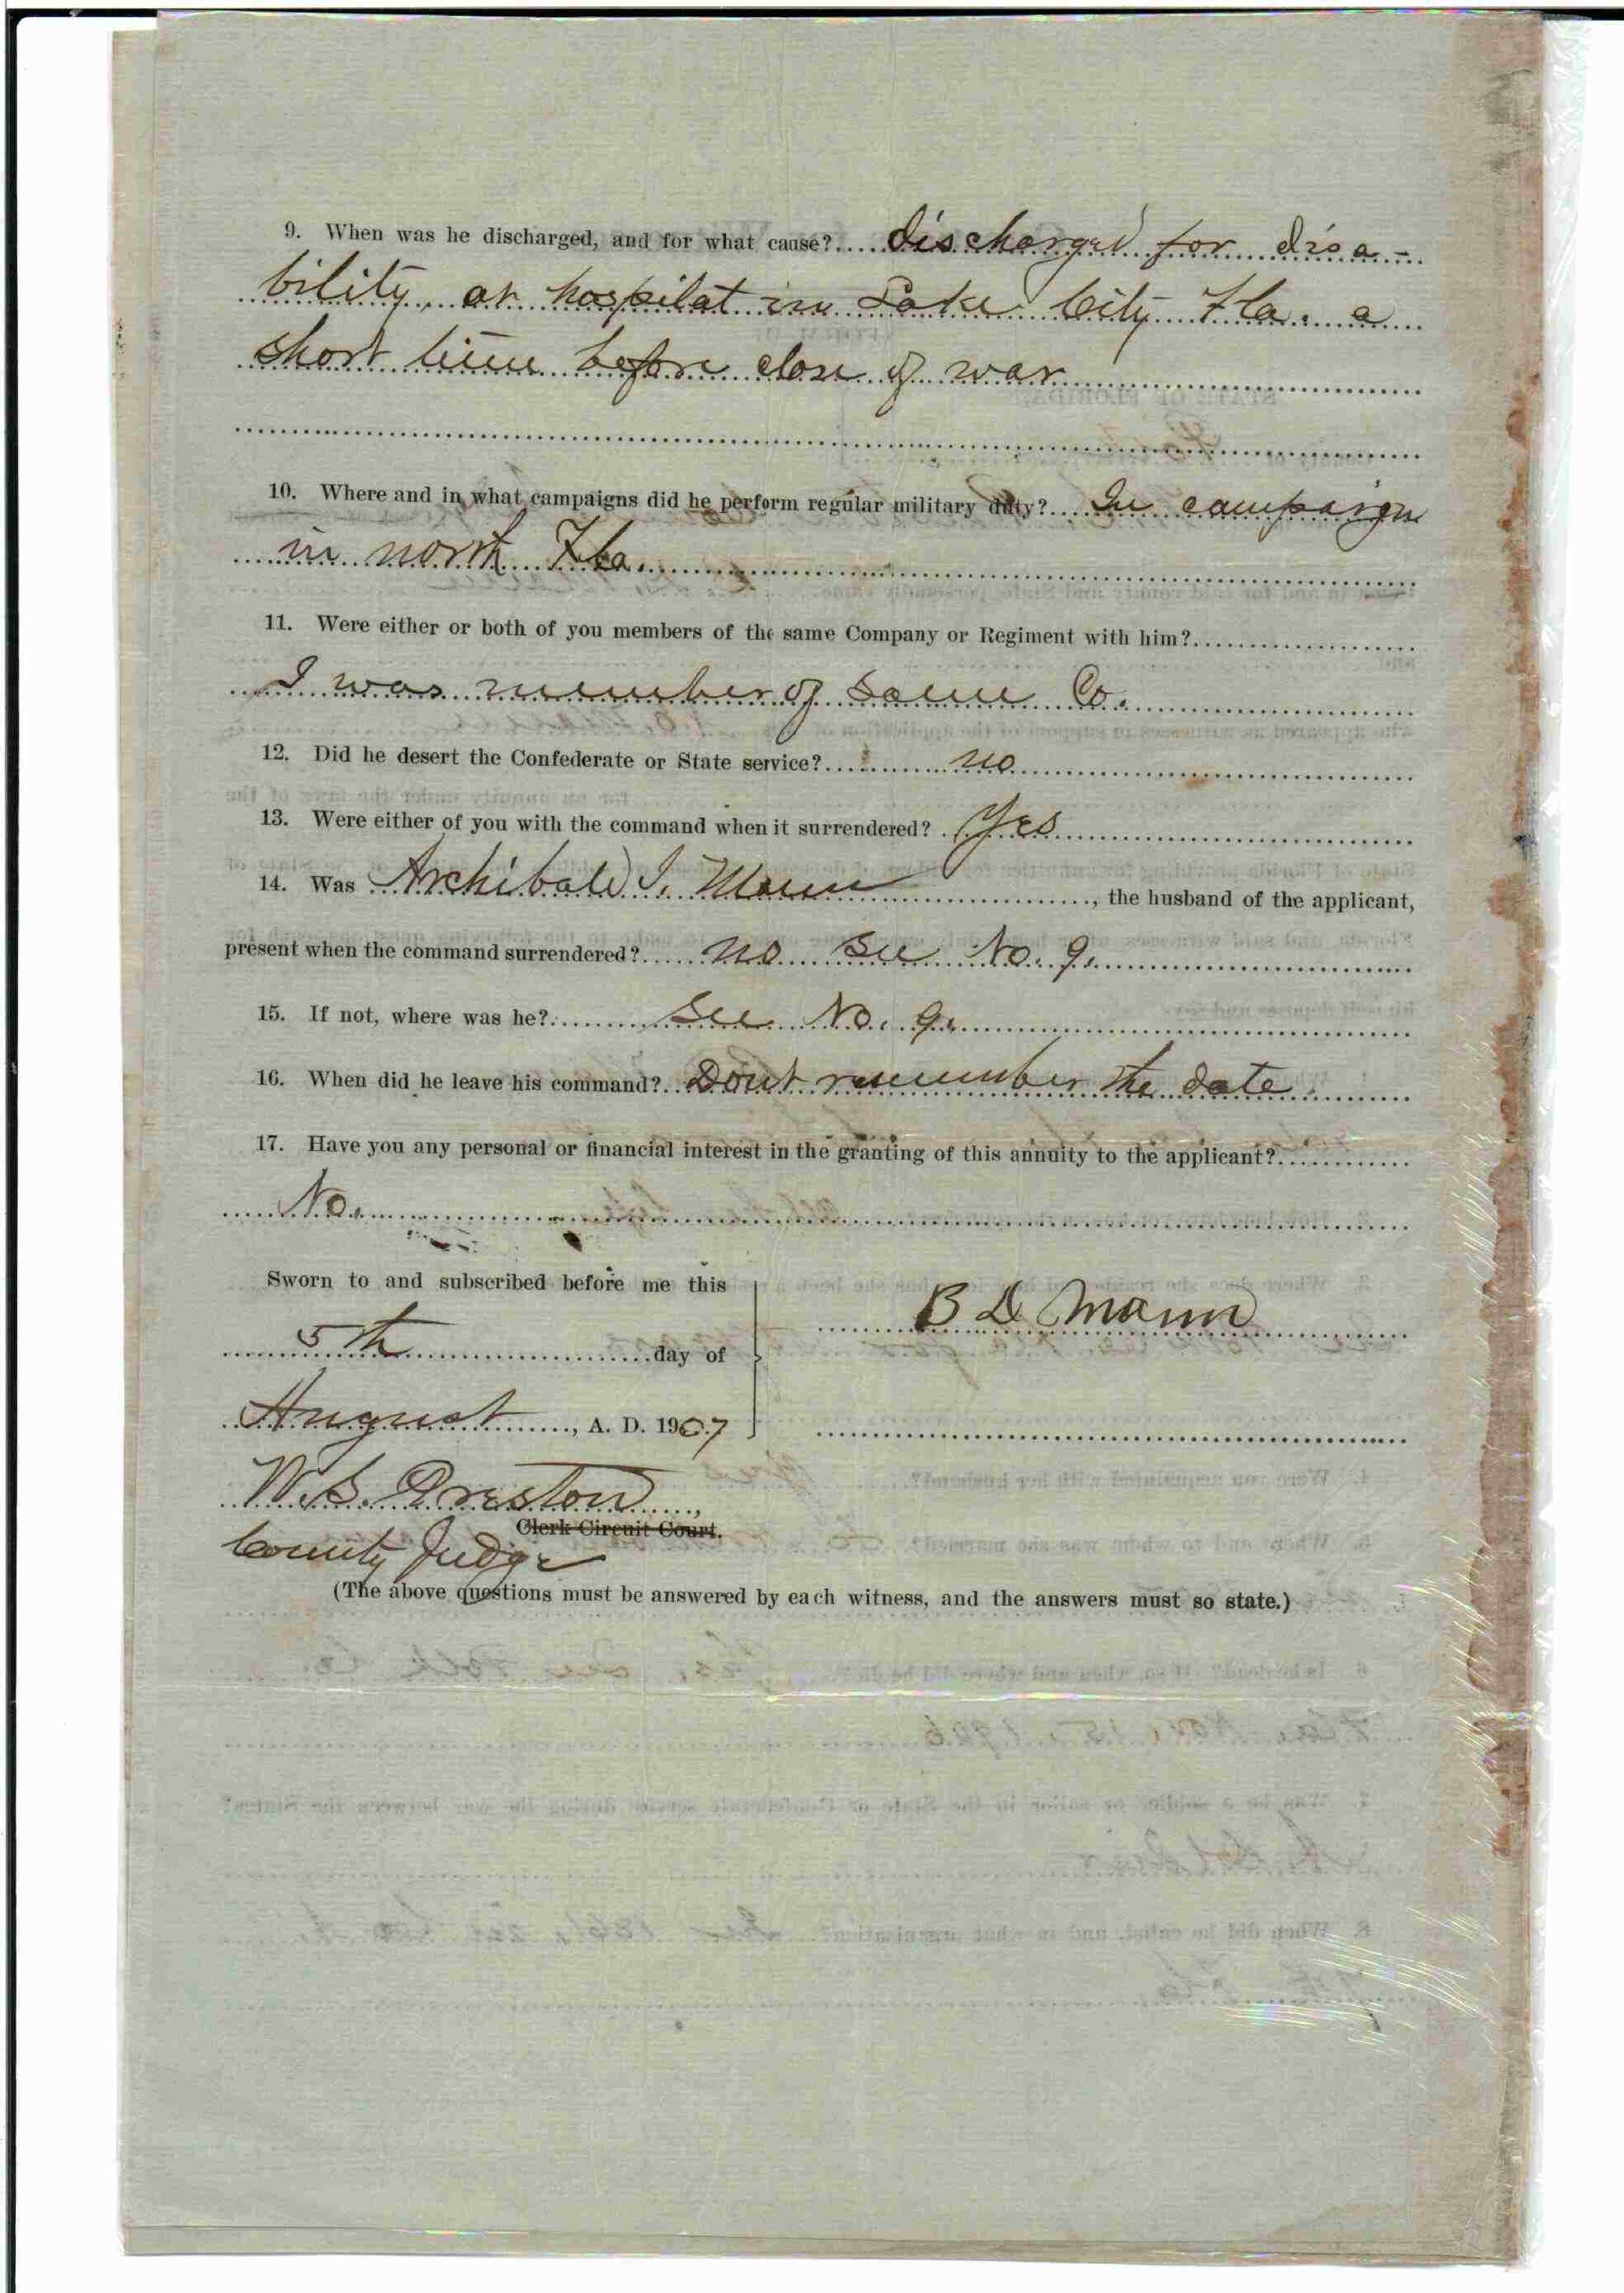 9. When was he discharged, and for what cause? discharged for disa-
bility, at hospital in Lake City Fla. a
short time before close of war
10. Where and in what campaigns did he perform regular military duty? In campaign
in north Fla.
11. Were either or both of you members of the same Company or Regiment with him?
I was member of same Co.
12. Did he desert the Confederate or State service? no
13. Were either of you with the command when it surrendered? Yes
14. Was Archibald I. Mann, the husband of the applicant,
present when the command surrendered? no see No. 9.
15. If not, where was he? See No. 9.
16. When did he leave his command? Dont remember the date
17. Have you any personal or financial interest in the granting of this annuity to the applicant?
No.
Sworn to and subscribed before me this
B D Mann
5th day of
August, A. D. 1907
W. S. Preston,
Clerk Circuit Court.
County Judge
(The above questions must be answered by each witness, and the answers must so state.)